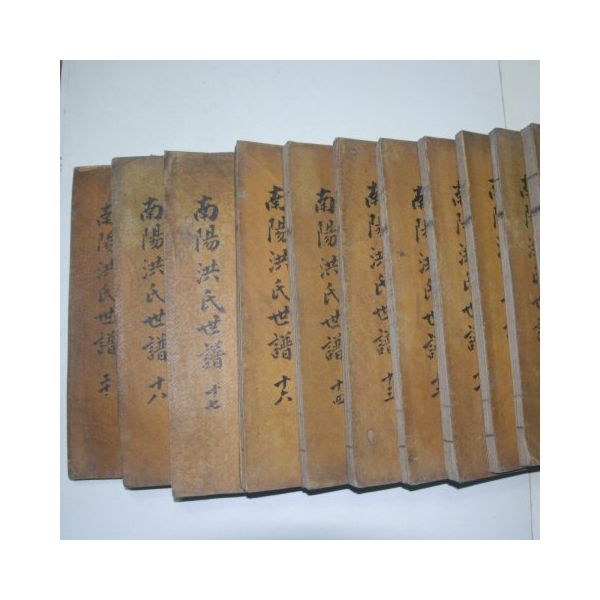 南陽洪氏世譜
南陽洪氏世譜 十八
南陽洪氏世譜 十七
南陽洪氏世譜 十六
南陽洪氏世譜 十四
南陽洪氏世譜 十三
南陽洪氏世譜 十二
南陽洪氏世譜
南陽洪氏世
南陽洪氏世